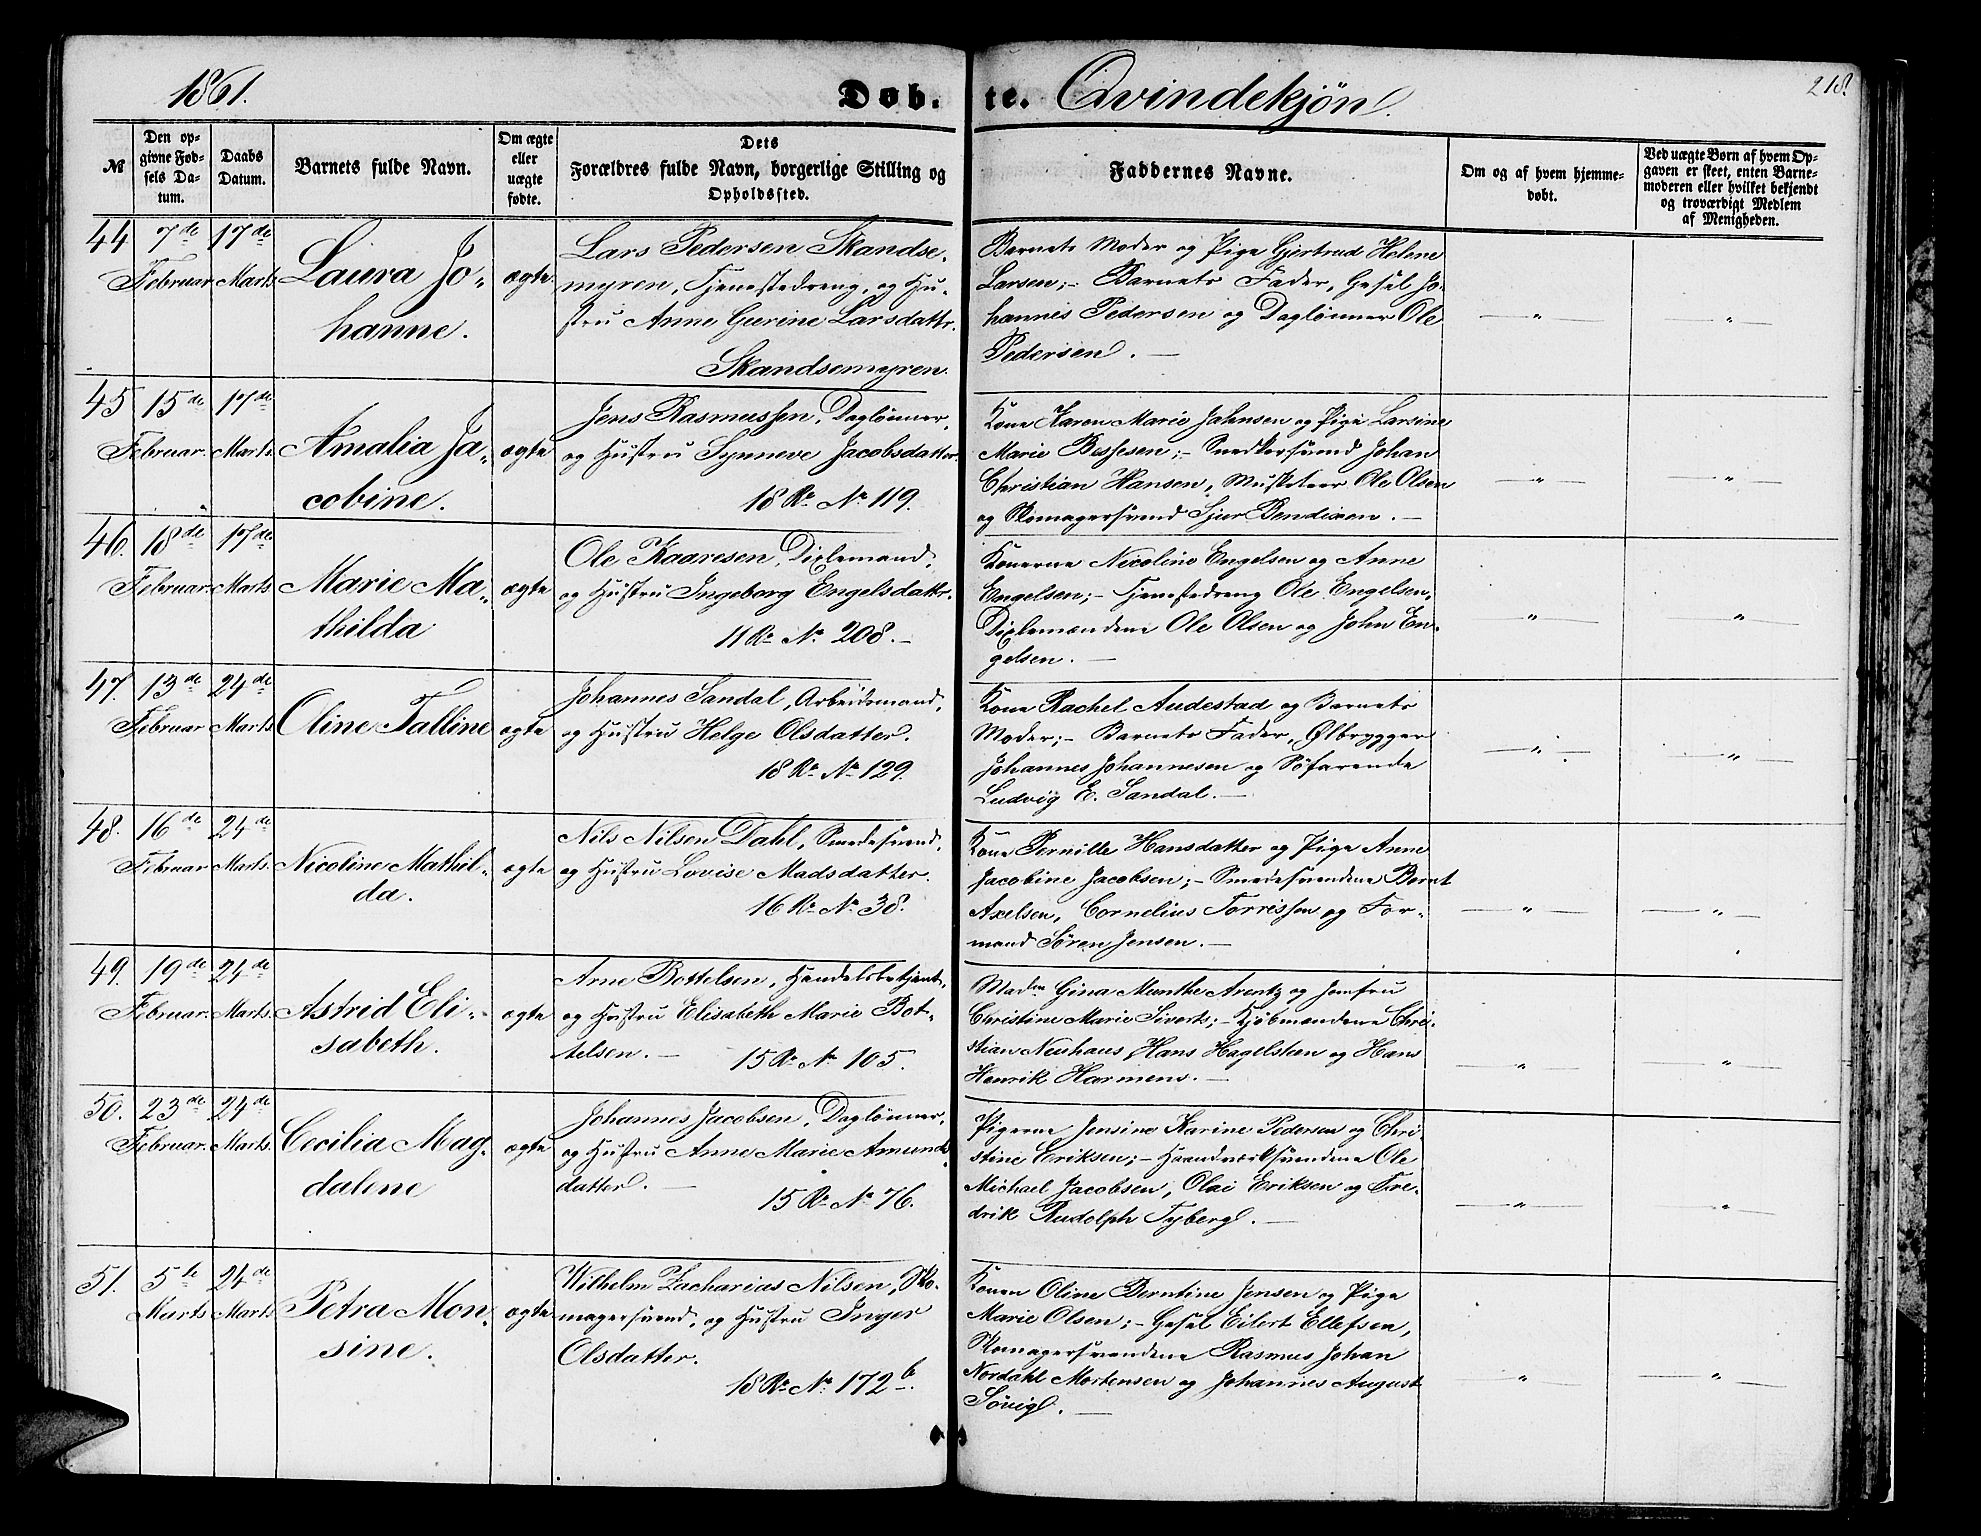 1861.
Døb-
te. Qvindekjøn.
218.
№
Den op-
givne Fød-
sels Da-
tum.
Daabs
Datum.
Barnets fulde Navn.
Om ægte
eller
uægte
fødte.
Dets
Forældres fulde Navn, borgerlige Stilling og
Opholdssted.
Faddernes Navne.
Om og af hvem hjemme-
døbt.
Ved uægte Børn af hvem Op-
gaven er skeet, enten Barne-
moderen eller hvilket bekjendt
og troværdigt Medlem
af Menigheden.
44 7de Februar 17de Marts.
Laura Jo-
hanne.
ægte.
Lars Pedersen Skandse-
myren, Tjenestedreng, og Hu-
stru Anne Gurine Larsdattr.
Skandsemyren.
Barnets Moder og Pige Gjertrud Helene
Larsen; - Barnets Fader, Gesel Jo-
hannes Pedersen og Daglønner Ole
Pedersen. —
—"— —"—
45 15de Februar. 17de Marts.
Amalia Ja-
cobine.
ægte
Jens Rasmussen, Daglønner,
og Hustru Synneve Jacobsdatter.
18 R. No 119.
Kone Karen Marie Jahnsen og Pige Larsine
Marie Bessesen; - Snedkersvend Johan
Christian Hansen, Musketeer Ole Olsen
og Skomagersvend Sjur Bendixen. —
—"— —"—
46. 18de Februar. 17de Marts.
Marie Ma-
thilda
ægte
Ole Kaaresen, Dixlemand,
og Hustru Ingeborg Engelsdattr.
11 R. No 208. —
Konerne Nicoline Engelsen og Anne
Engelsen; - Tjenestedreng Ole Engelsen,
Dixlemændene Ole Olsen og John En-
gelsen. —
—"— —"—
47. 13de Februar 24de Marts.
Oline Talline
ægte
Johannes Sandal, Arbeidsmand,
og Hustru Helge Olsdatter.
18 R. No 129.
Kone Rachel Audestad og Barnets
Moder; - Barnets Fader, Ølbrygger
Johannes Johannesen og Søfarende
Ludvig E. Sandal. —
—"— —"—
48. 16de Februar 24de Marts.
Nicoline Mathil-
da.
ægte
Nils Nilsen Dahl, Smedesvend,
og Hustru Lovise Madsdatter.
16 R. No 38.
Kone Pernille Hansdatter og Pige Anne
Jacobine Jacobsen; - Smedesvendene Bernt
Axelsen, Cornelius Torrissen og For-
mand Søren Jensen. —
—"— —"—
49. 19de Februar. 24de Marts.
Astrid Eli-
sabeth.
ægte
Arne Bottelsen, Handelsbetjent,
og Hustru Elisabeth Marie Bot-
telsen. — 15 R. No 105.
Mad.m Gina Munthe Arentz og Jomfru
Christine Marie Siverts; - Kjøbmændene Chri-
stian Neuhaus, Hans Hagelsteen og Hans
Henrik Harmens. —
—"— —"—
50. 23de Februar. 24de Marts.
Cecilia Mag-
dalene
ægte
Johannes Jacobsen, Daglønner,
og Hustru Anne Marie Amunds-
datter. —
15 R. No 76.
Pigerne Jensine Karine Pedersen og Chri-
stine Eriksen; - Haandværksvendene Ole
Michael Jacobsen, Olai Eriksen og Fre-
drik Rudolph Tyberg. —
—"— —"—
51. 5te Marts 24de Marts.
Petra Mon-
sine.
ægte
Wilhelm Zacharias Nilsen, Sko-
magersvend, og Hustru Inger
Olsdatter.
18 R. No 172 b.
Konen Oline Berntine Jensen og Pige
Marie Olsen; - Gesel Eilert Ellefsen,
Skomagersvendene Rasmus Johan
Nordahl Mortensen og Johannes August
Søvig. —
—"— —"—